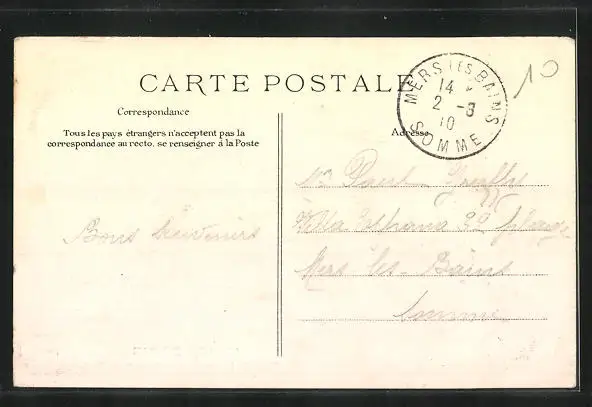 CARTE POSTALE
Correspondance
Tous les pays étrangers n'acceptent pas la
correspondance au recto. se renseigner à la Poste
Adresse
MERS LES BAINS
14
2 -8
10
SOMME
10
Bons Souvenirs
Paul
Villa plage
Mers les-Bains
Somme